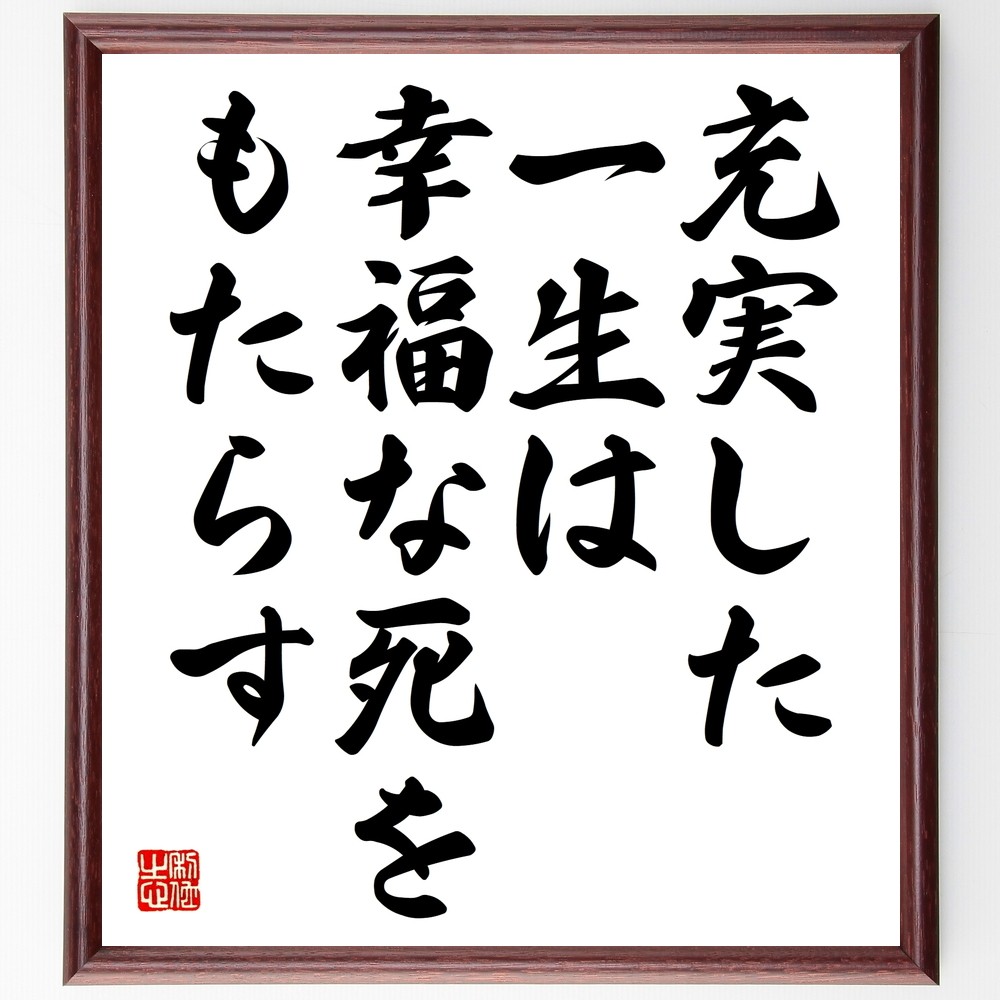 充実した
一生は
幸福な死を
もたらす